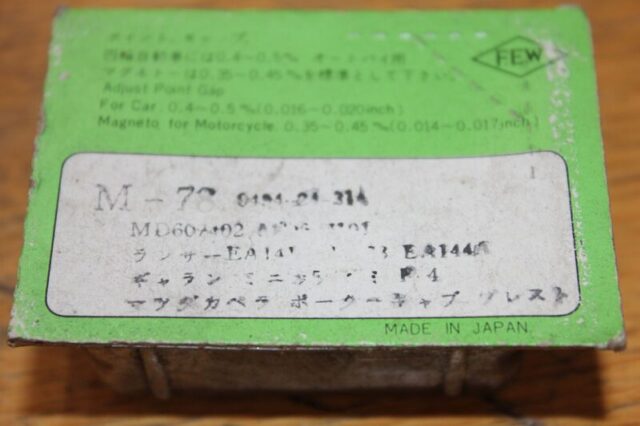 ポイント、ギャップ
FEW
四輪自動車には0.4~0.5㎜ オートバイ用
マグネトーは0.35~0.45㎜を標準として下さい
Adjust Point Gap
For Car. 0.4~0.5㎜(0.016~0.020inch)
Magneto for Motorcycle. 0.35~0.45㎜(0.014~0.017inch)
M-78 9194-24-314
ランサー EA144
ギャラン ミニカ F4
マツダカペラ ポーターキャブ
MADE IN JAPAN